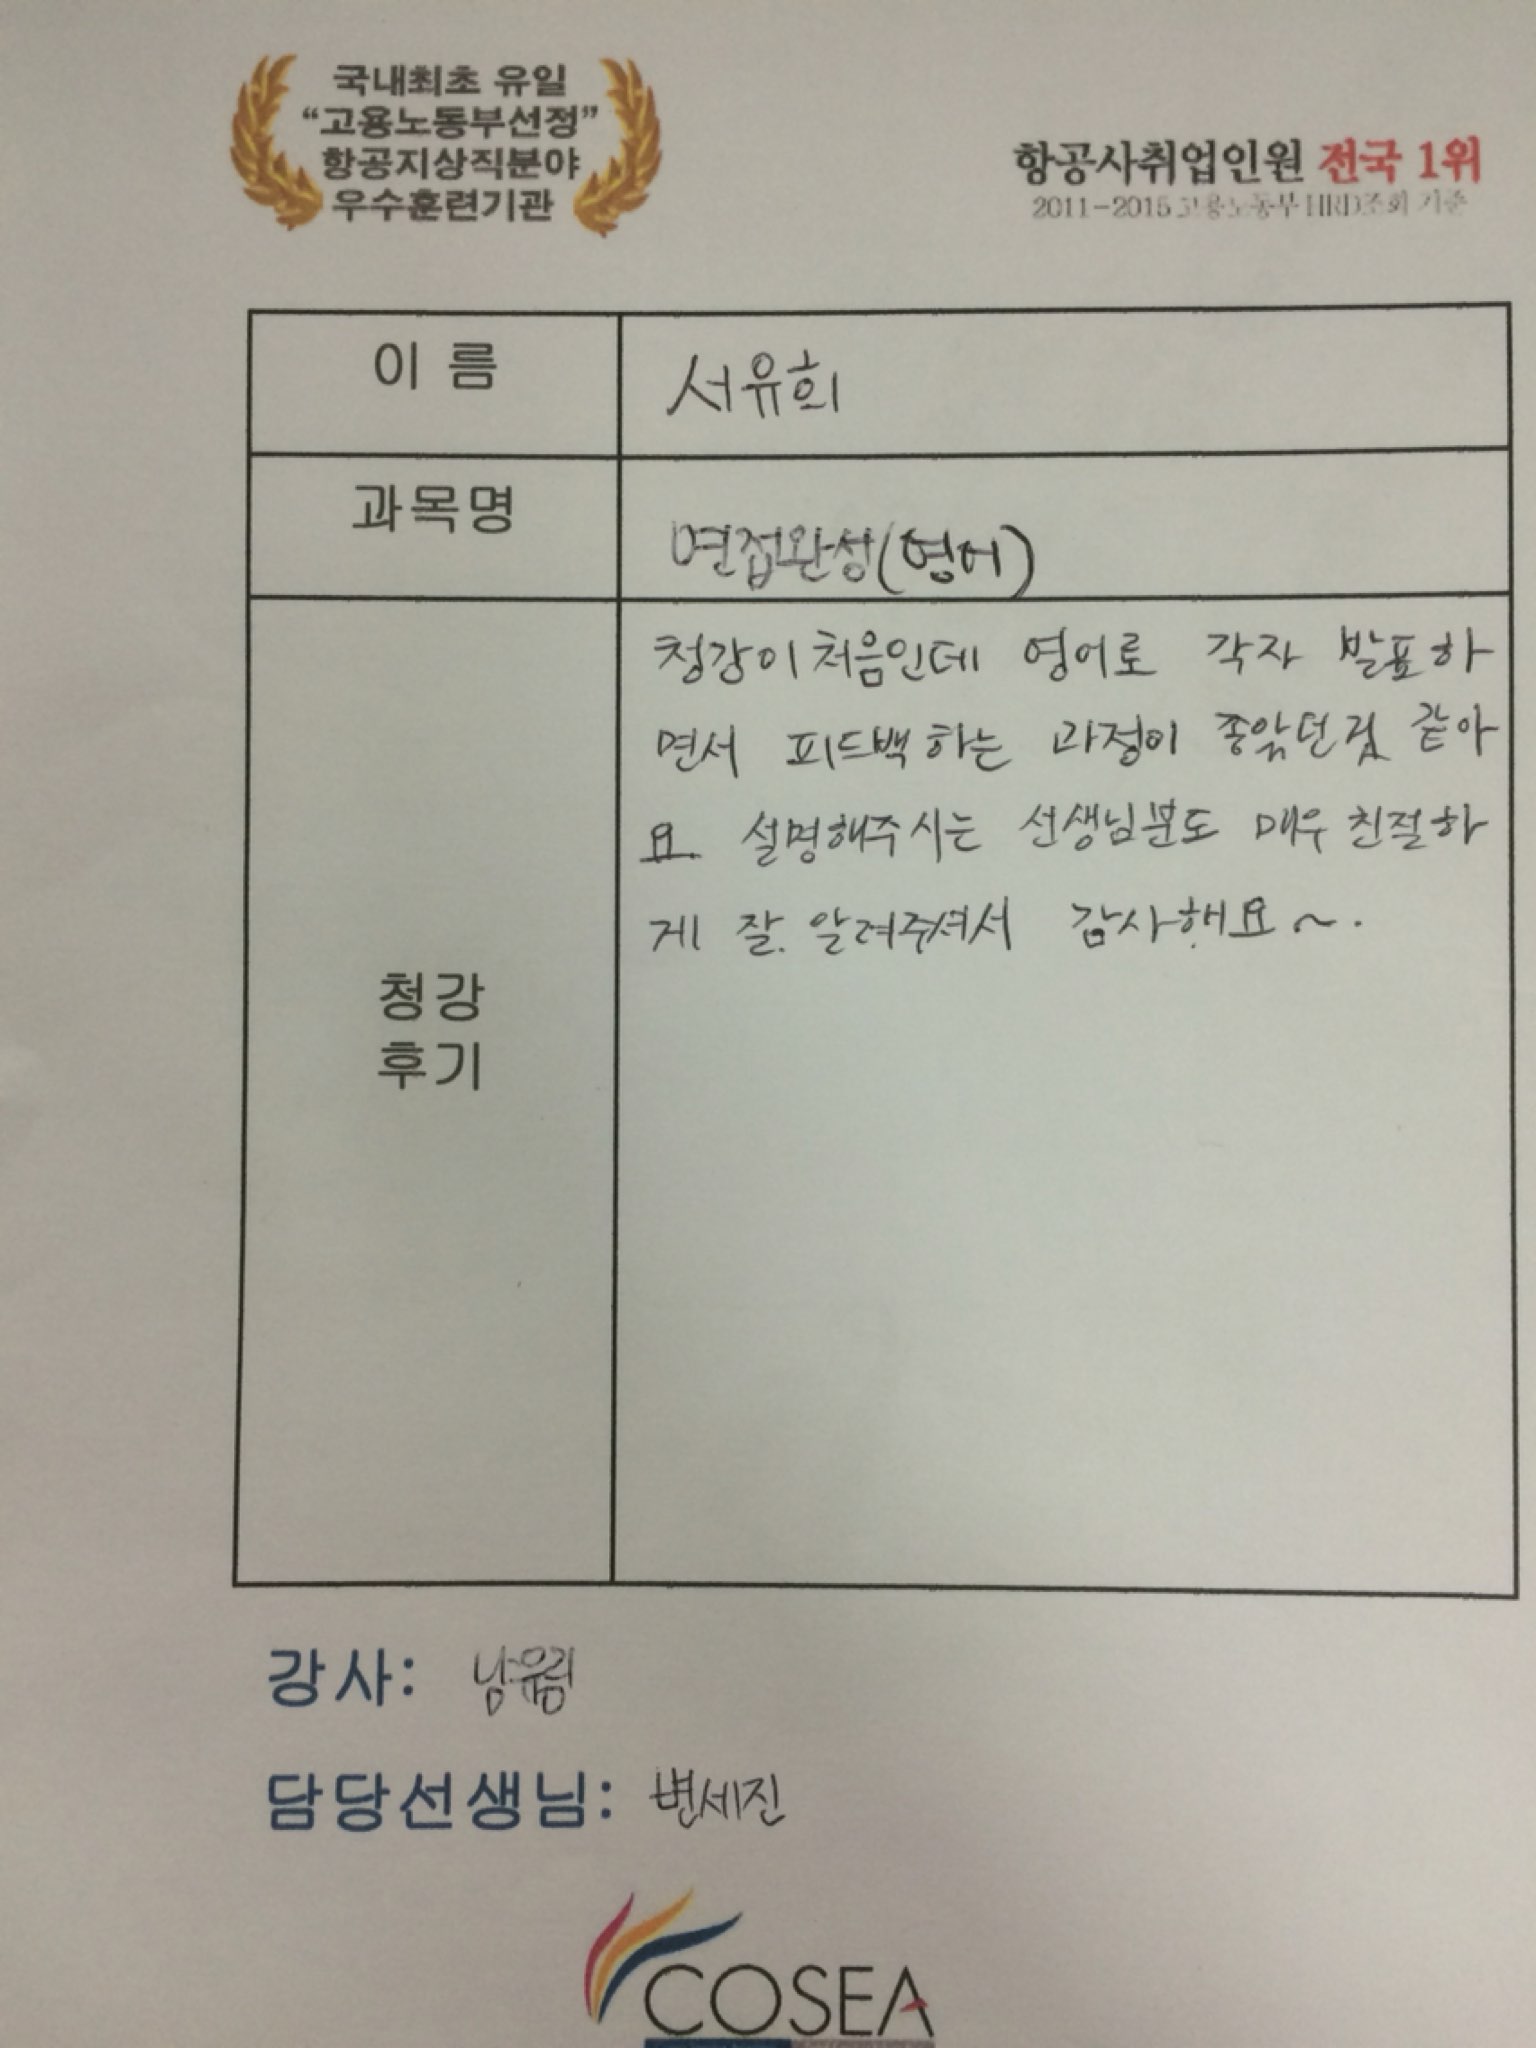 국내최초 유일
“고용노동부선정”
항공지상직분야
우수훈련기관
항공사취업인원 전국 1위
2011-2015 고용노동부 HRD조회 기준
이 름
서유희
과목명
면접완성(영어)
청강이 처음인데 영어로 각자 발표하
면서 피드백하는 과정이 좋았던것 같아
요 설명해주시는 선생님분도 매우 친절하
게 잘 알려주셔서 감사해요~.
청강
후기
강사: 남유림
담당선생님: 변세진
COSEA